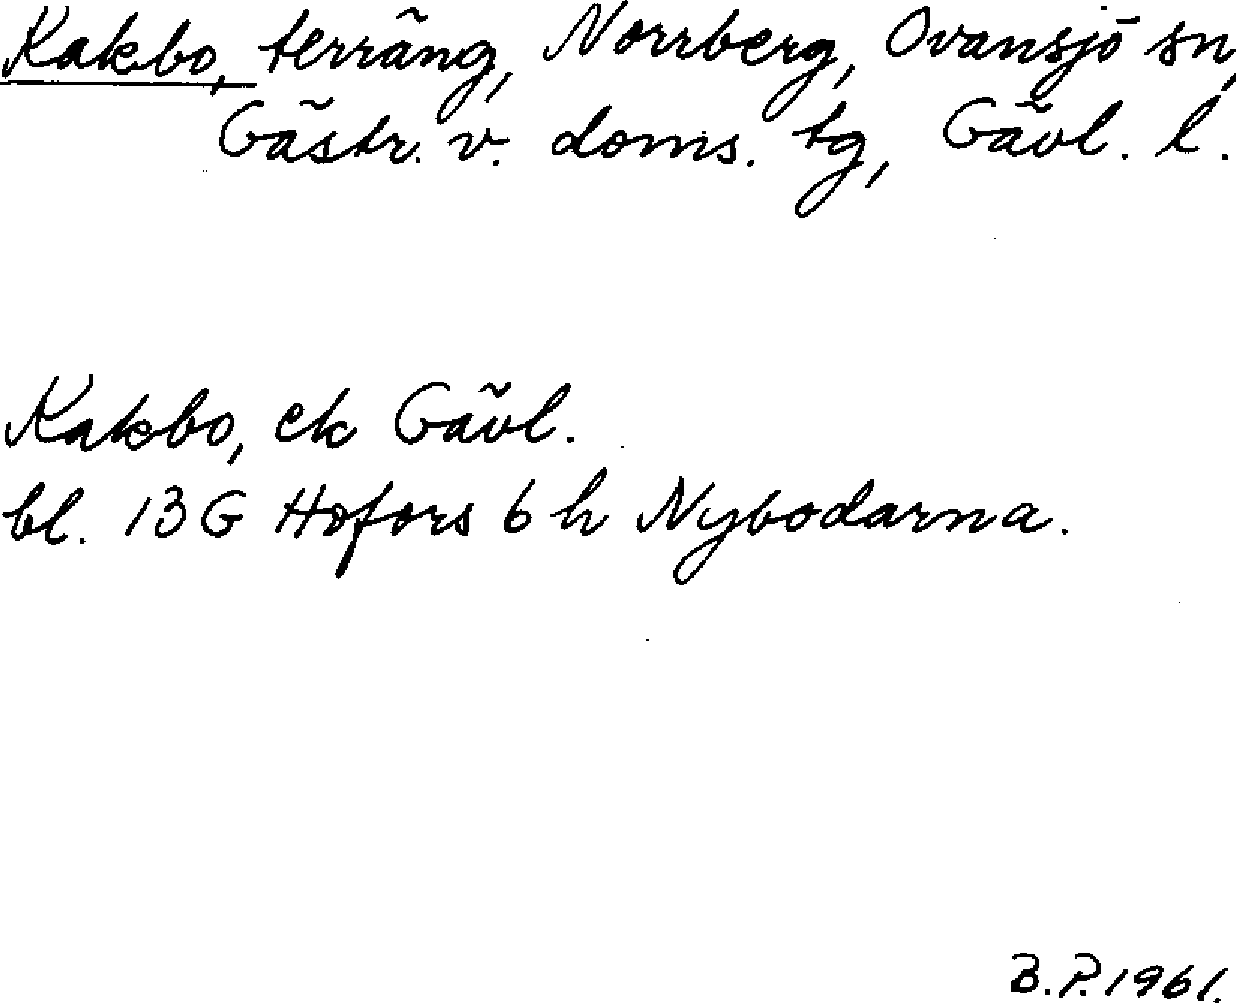 Kakbo, terräng, Norrberg, Ovansjö sn,
Gästr. v. doms. tg, Gävl. l.
Kakbo, ek Gävl.
bl. 13 G Hofors 6 h Nybodarna.
B.P. 1961.